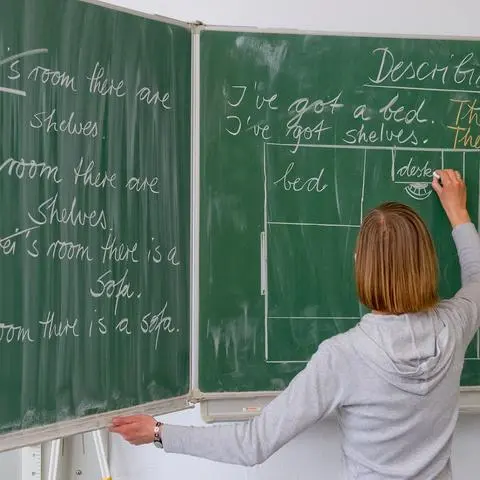 's room there are
shelves.
room there are
Shelves.
's room there is a
Sofa.
room there is a sofa.
Describi
I've got a bed. Th
I've got shelves. The
bed
desk